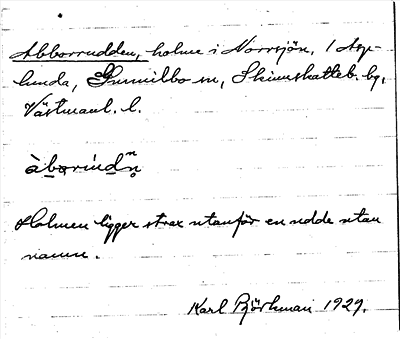 Abborrudden, holme i Norrsjön, 1 Asp-
lunda, Gunnilbo sn, Skinnskatteb. bg,
Västmanl. l.
àborindn̥
Holmen ligger strax utanför en udde utan
namn.
Karl Björkman 1929.